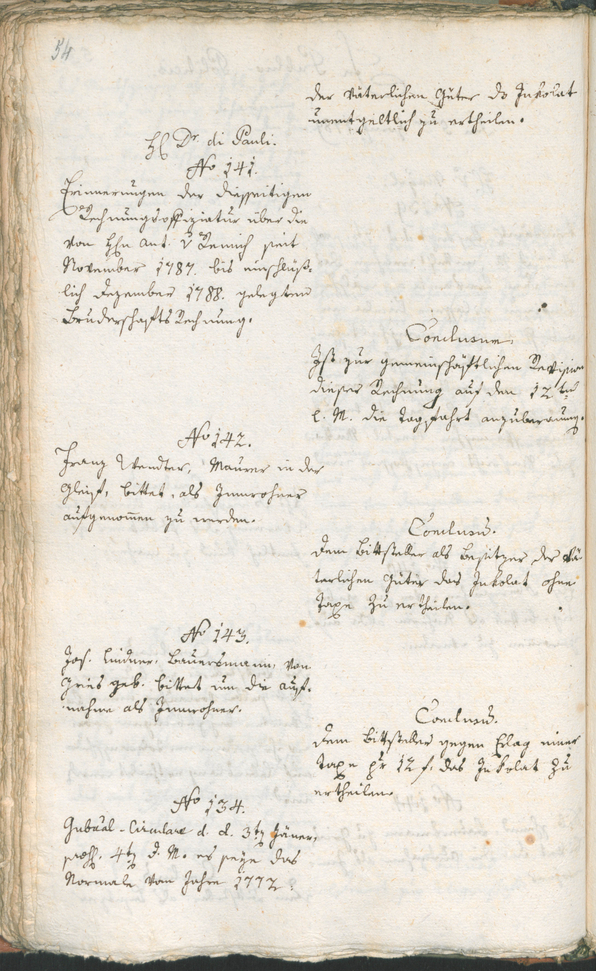 54
der väterlichen Güter das Inkolat
unentgeltlich zu ertheilen.
H. Dr. di Pauli.
No 141.
Erinnerungen der dießeitigen
Rechnungsoffiziatur über die
von Hrn Ant. v seit
November 1787. bis einschlüß-
lich Dezember 1788. gelegten
Bruderschafts Rechnung.
Conclusum.
Ist zur gemeinschäftlichen Revision
dieser Rechnung auf den 12ten
l. M. die Tagsfahrt anzuberaumen.
No 142.
Franz Wendter, Maurer in der
Gleif, bittet, als Innwohner
aufgenom̄en zu werden.
Conclusum.
Dem Bittsteller als Besitzer der vä-
terlichen Güter das Inkolat ohne
Taxe zu ertheilen.
No 143.
Jos. Lindner, Bauersmann, von
Gries geb. bittet um die auf-
nahme als Innwohner.
Conclusum.
Dem Bittsteller gegen Erlag einer
Taxe pr 12 f. das Inkolat zu
ertheilen.
No 134.
Gubial-Circulare d. d. 3ten Jäner,
4ten d. M. es seye das
Normale vom Jahre 1772